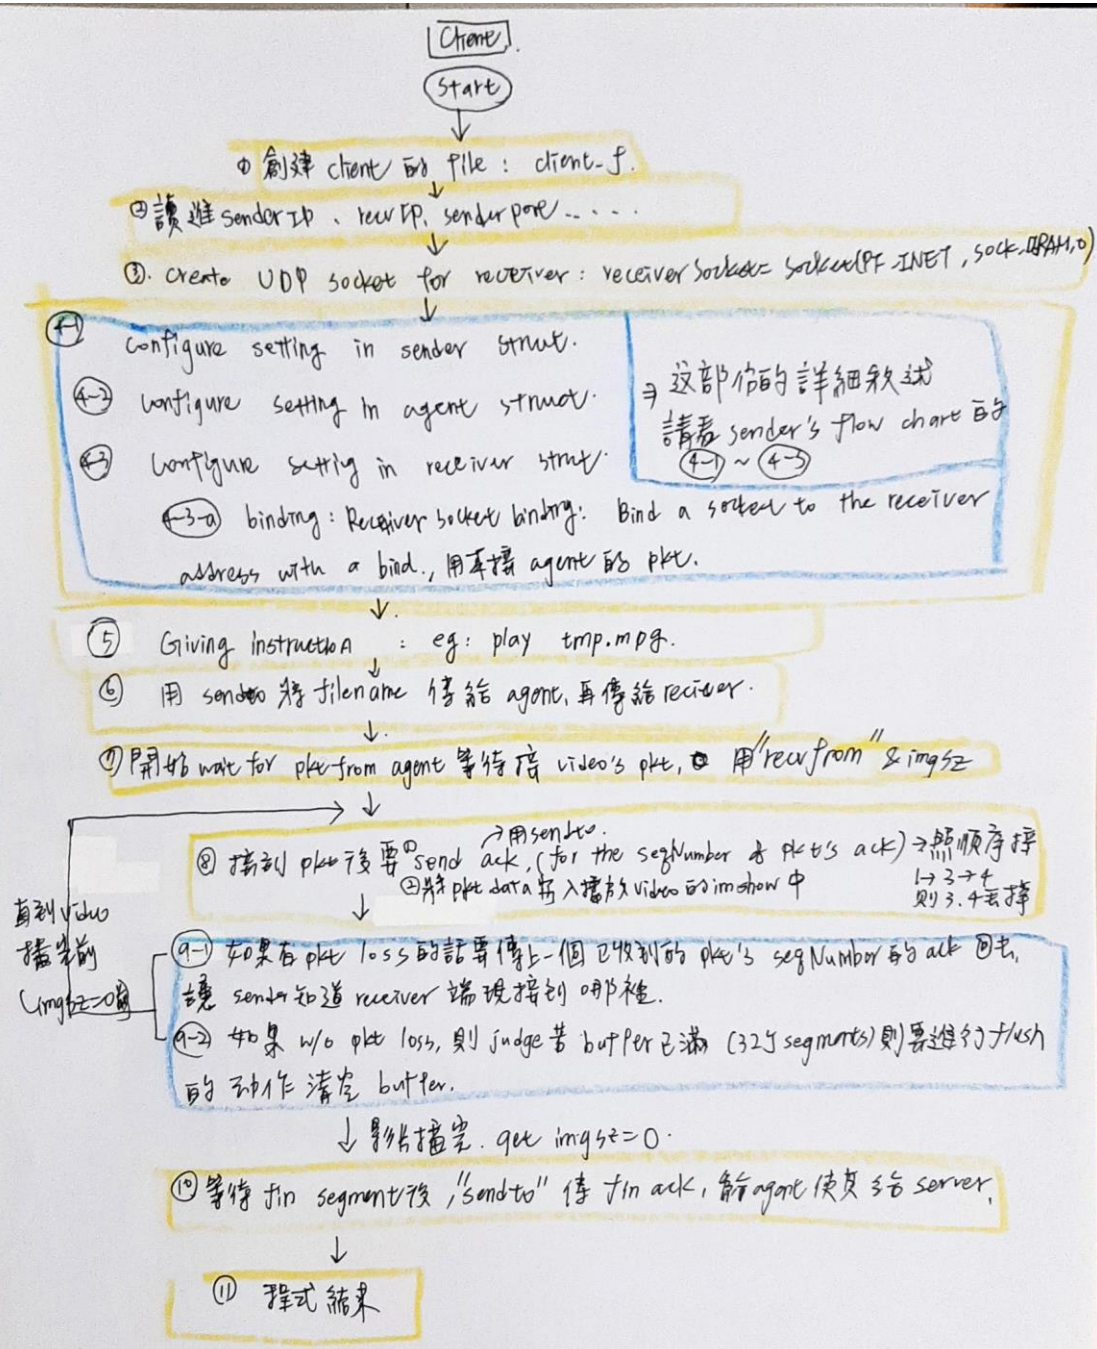 Client
Start
① 創建 client 的 file : client_f.
② 讀進 sender IP、recv IP, sender port.....
③. Create UDP socket for receiver : receiver socket = socket(PF_INET, SOCK_DGRAM, 0)
④-1 Configure setting in sender strut.
④-2 configure setting in agent struct.
④-3 Configure setting in receiver strut.
⇒ 这部份的詳細敘述
請看 sender's flow chart 的
④-1 ~ ④-3
④-3-a binding : Receiver socket binding: Bind a socket to the receiver
address with a bind., 用來接 agent 的 pkt.
⑤ Giving instruction : eg: play tmp.mpg.
⑥ 用 sendto 將 filename 傳給 agent, 再傳給 reciever.
⑦ 開始 wait for pkt from agent 等待接 video's pkt, 用 "recvfrom" & imgsz
→用 sendto.
⑧ 接到 pkt 後要 ① send ack, (for the seqNumber of pkt's ack) → 照順序接
② 將 pkt data 寫入播放 video 的 imshow 中
1→3→4
則 3.4 丟掉
直到 video
播完前
(imgsz=0前
9-1 如果有 pkt loss 的話要傳上一個已收到的 pkt's seqNumber 的 ack 回去,
讓 sender 知道 receiver 端現接到哪裡.
9-2 如果 w/o pkt loss, 則 judge 若 buffer 已滿 (32個 segments) 則要進行 flush
的动作清空 buffer.
↓ 影片播完. get imgsz=0.
⑩ 等待 fin segment 後, "sendto" 傳 fin ack, 給 agent 使其給 server.
⑪ 程式結束